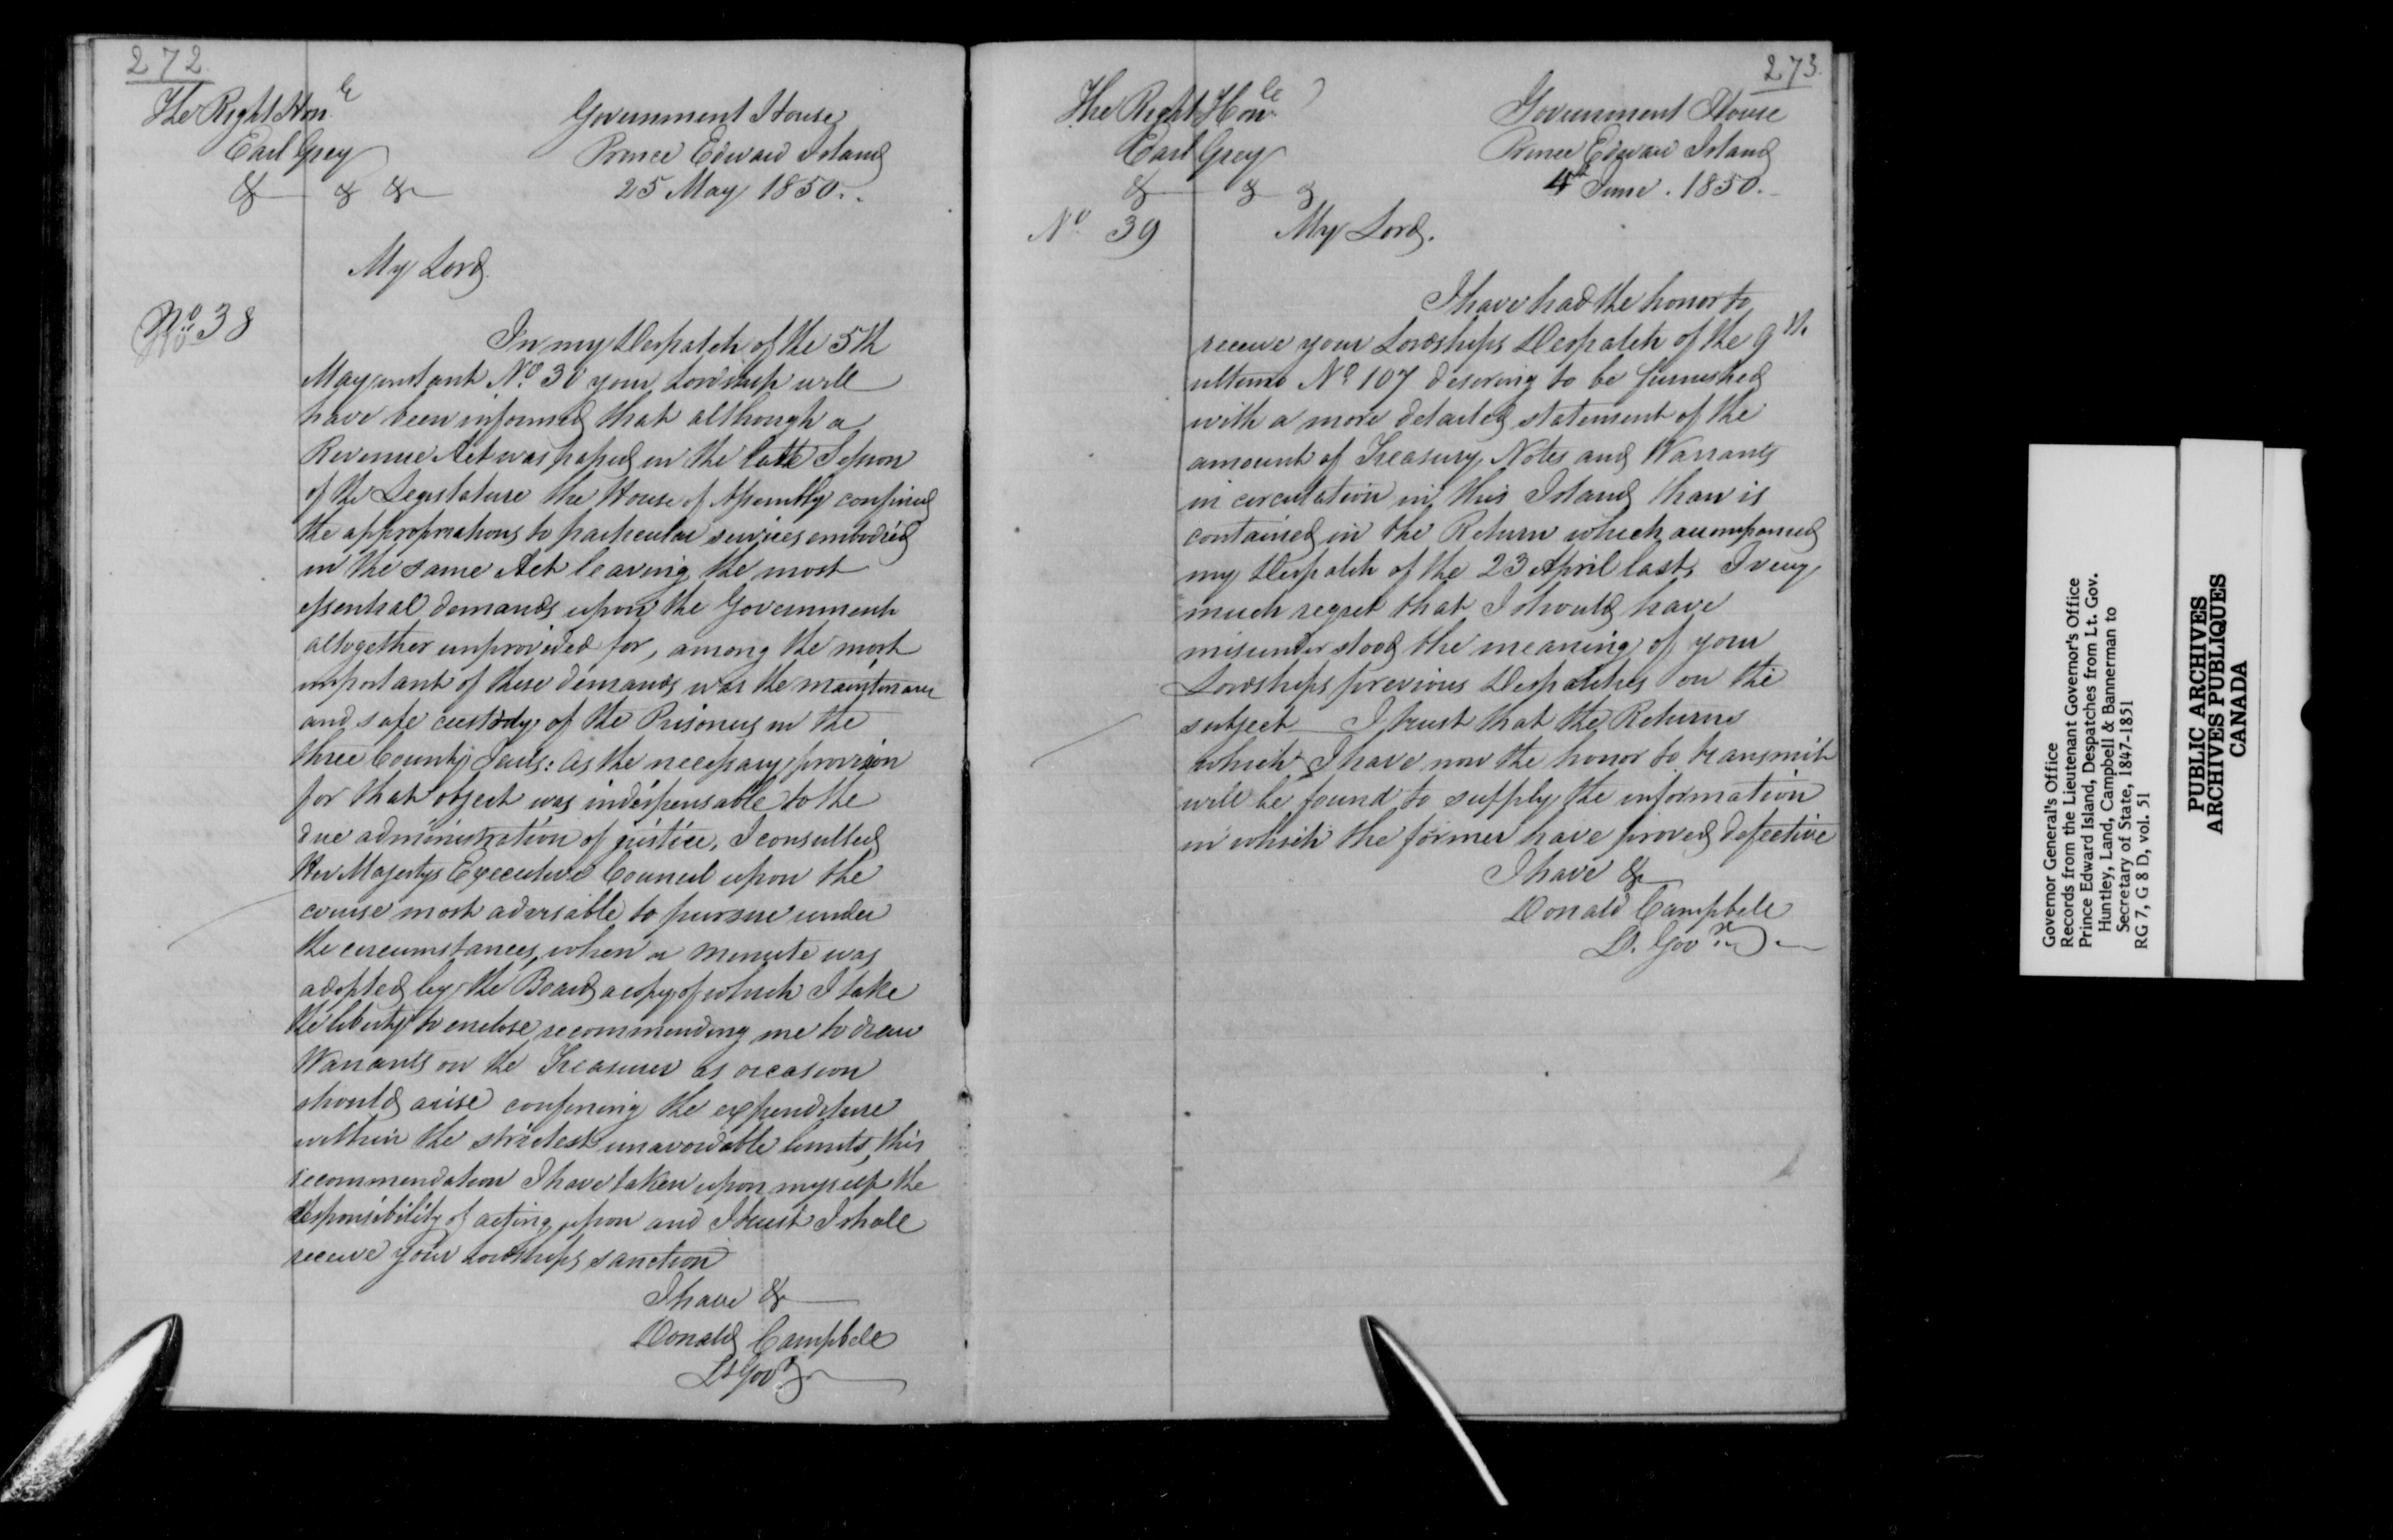 272.
The Right Honle
Earl Grey
& & &
Government House
Prince Edward Island
25 May 1850..
My Lord.
No 38
In my Despatch of the 5th
May instant No. 30 your Lordship will
have been informed that although a
Revenue Act was passed in the late Session
of the Legislature the House of Assembly confined
the appropriations to particular services embodied
in the same Act leaving the most
essential demands upon the Government
altogether unprovided for, among the most
important of these demands was the maintenance
and safe custody of the Prisoners in the
three County Jails: as the necessary provision
for that object was indispensable to the
due administration of justice, I consulted
Her Majestys Executive Council upon the
course most advisable to pursue under
the circumstances, when a minute was
adopted by the Board a copy of which I take
the liberty to enclose, recommending me to draw
Warrants on the Treasurer as occasion
should arise confining the expenditure
within the strictest unavoidable limits, this
recommendation I have taken upon myself the
responsibility of acting upon and I trust I shall
receive your Lordships sanction
I have &
Donald Campbell
Lt Govr
273.
The Right Honle
Earl Grey
& & &
Government House
Prince Edward Island
4th June. 1850.
No 39
My Lord.
I have had the honor to
receive your Lordships Despatch of the 9th
ultimo No 107 desiring to be furnished
with a more detailed statement of the
amount of Treasury Notes and Warrants
in circulation in this Island than is
contained in the Return which accompanied
my Despatch of the 23 April last, I very
much regret that I should have
misunderstood the meaning of your
Lordships previous Despatches on the
subject I trust that the Returns
which I have now the honor to transmit
will be found to supply the information
in which the former have proved defective
I have &
Donald Campbell
Lt. Govr.
Governor General's Office
Records from the Lieutenant Governor's Office
Prince Edward Island, Despatches from Lt. Gov.
Huntley, Land, Campbell & Bannerman to
Secretary of State, 1847-1851
RG 7, G 8 D, vol. 51
PUBLIC ARCHIVES
ARCHIVES PUBLIQUES
CANADA